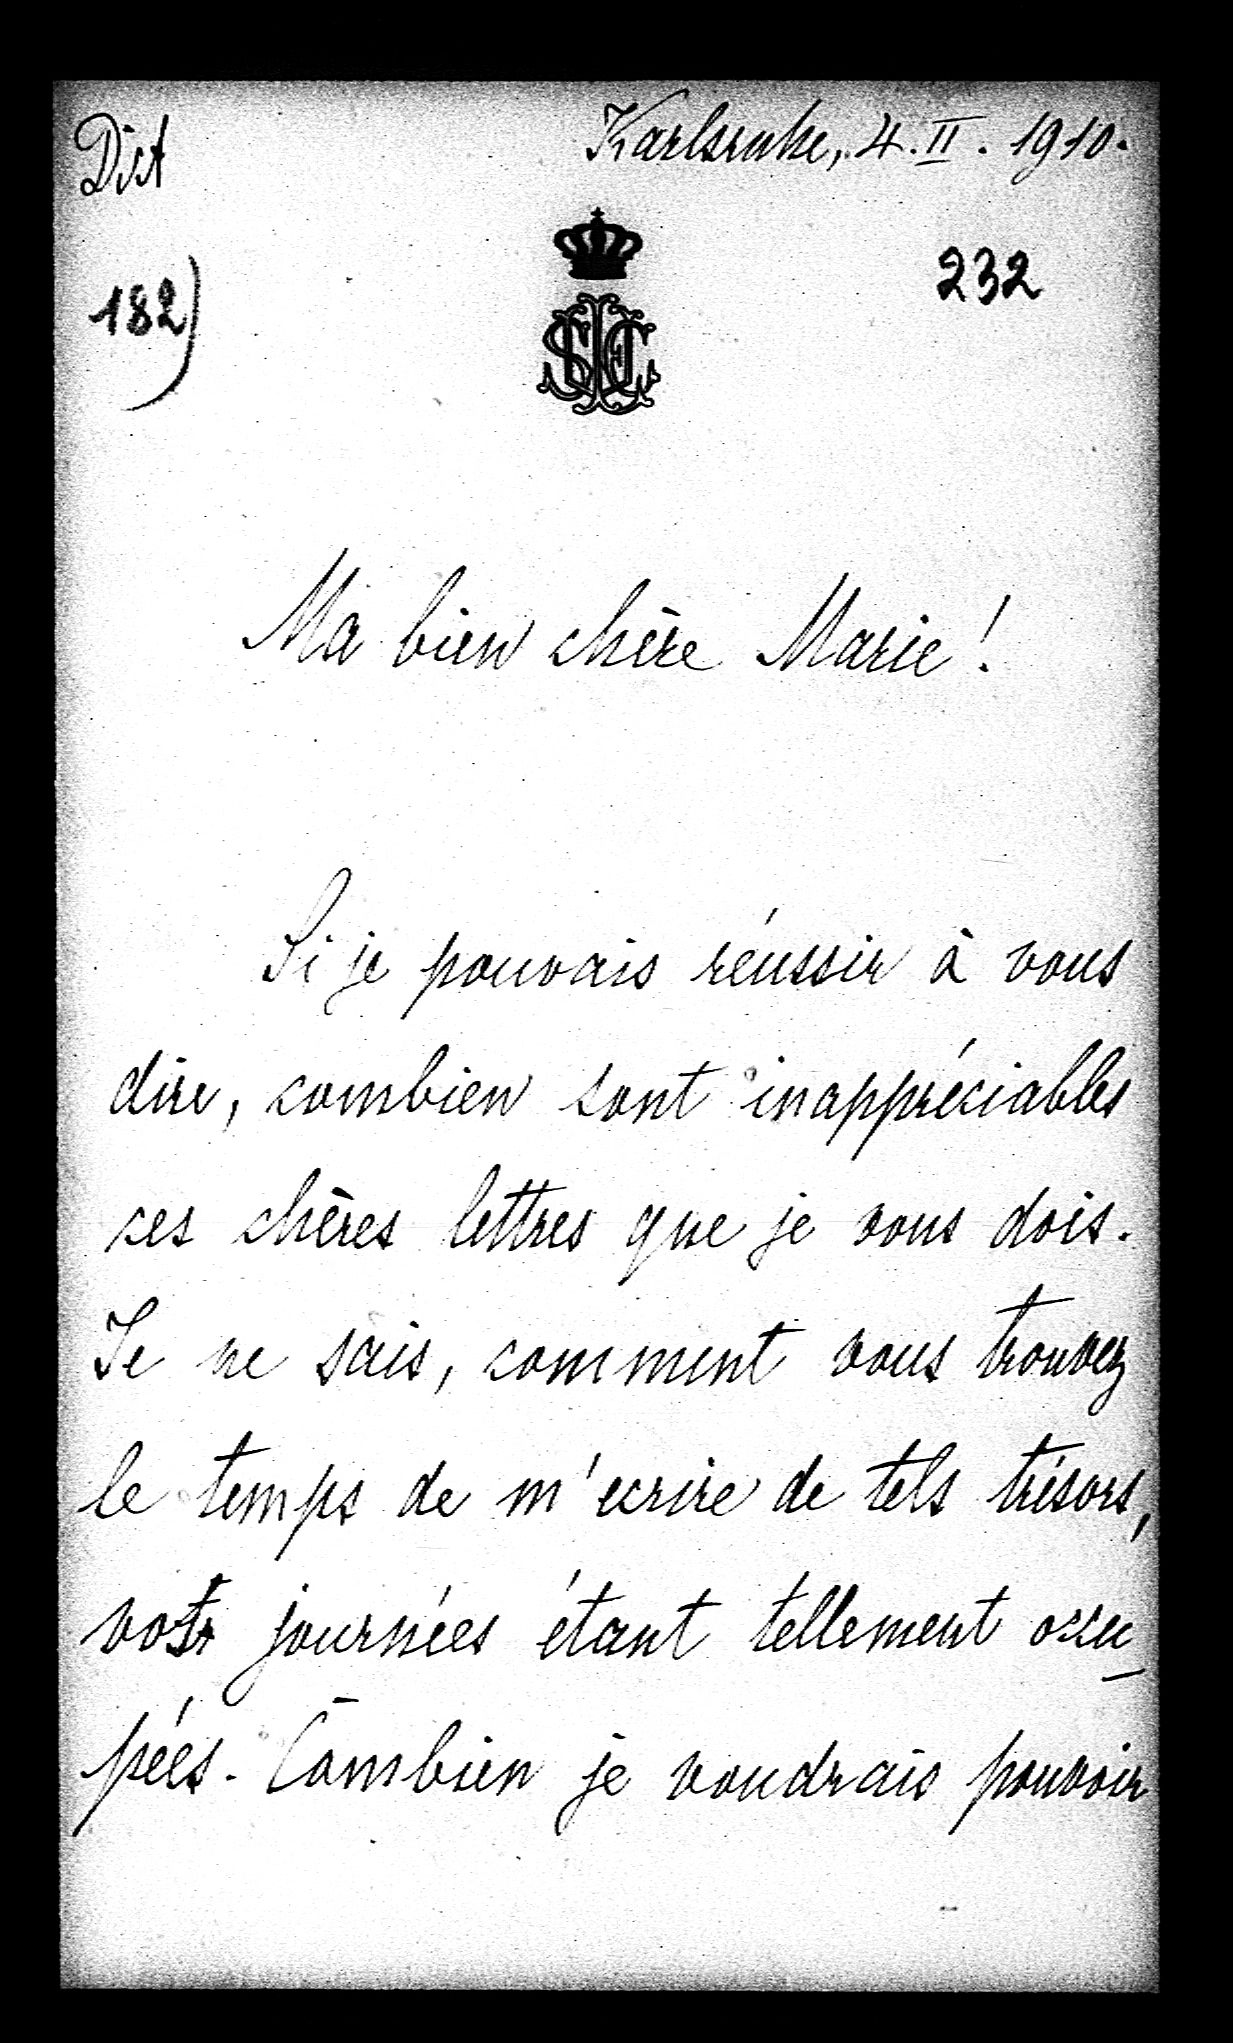 Dict
Karlsruhe, 4. II. 1910.
182)
232
Ma bien chère Marie!
Si je pouvais réussir à vous
dire, combien sont inappréciables
ces chères lettres que je vous dois.
Je ne sais, comment vous trouvez
le temps de m'ecrire de tels trésors,
journées étant tellement occu-
pées. Combien je voudrais pouvoir